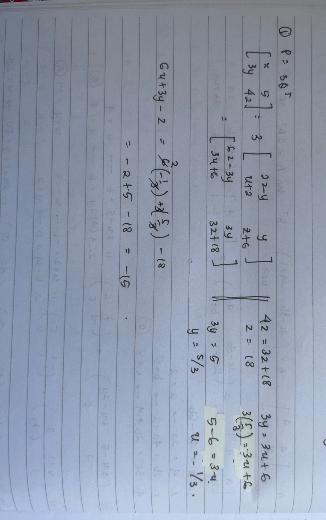 ① P = 3Q^T
[ x 5 3y 4z ] = 3 [ 2z-y y u+2 z+6 ]
= [ 6z-3y 3y 3u+6 3z+18 ]
4z = 3z+18
z = 18
3y = 5
y = 5/3
3y = 3u+6
3(5/3) = 3u+6
5-6 = 3u
u = -1/3.
6u+3y-z = 6(-1/3)+3(5/3)-18
= -2+5-18 = -15.